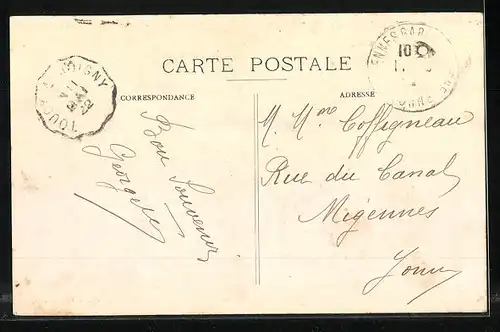 CARTE POSTALE
CORRESPONDANCE
ADRESSE
Bon Souvenir
Georgette
M. Mme Coffigneau
Rue du Canal
Migennes
Yonne
JOIGNY
10